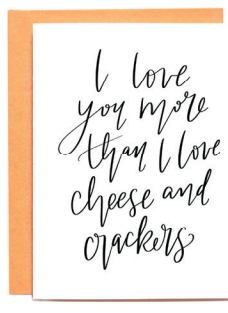 I love
you more
than I love
cheese and
crackers